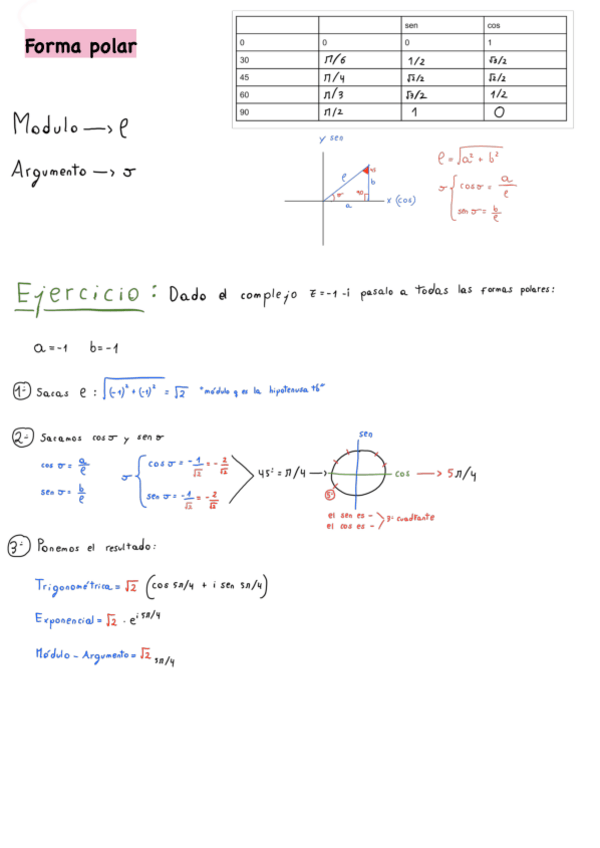 Forma polar
sen cos
0 0 0 1
30 π/6 1/2 √3/2
45 π/4 √2/2 √2/2
60 π/3 √3/2 1/2
90 π/2 1 0
Modulo → ρ
Argumento → σ
y sen
ρ
45
b
σ
90
a
x (cos)
ρ = √a² + b²
σ { cos σ = a/ρ
sen σ = b/ρ
Ejercicio: Dado el complejo z = -1 - i pasalo a todas las formas polares:
a = -1 b = -1
1º Sacas ρ: √(-1)² + (-1)² = √2 "módulo q es la hipotenusa tb"
2º Sacamos cos σ y sen σ
cos σ = a/ρ
sen σ = b/ρ
σ { cos σ = -1/√2 = -2/√2
sen σ = -1/√2 = -2/√2
45º = π/4 →
sen
cos → 5π/4
5º
el sen es -
el cos es - > 3º cuadrante
3º Ponemos el resultado:
Trigonométrica = √2 (cos 5π/4 + i sen 5π/4)
Exponencial = √2 · e^i 5π/4
Módulo - Argumento = √2 5π/4